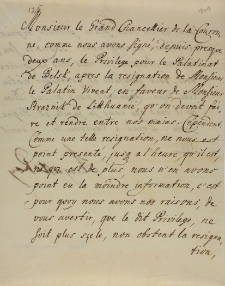 Monsieur le Grand Chancellier de la Couron-
ne, comme nous avons signé, depuis presque
deux ans, le Privilege pour le Palatinat
de Belsk, apres la resignation de Monsieur
le Palatin Vivent, en faveur de Monsieur
de Litthuanie, qu'on devoit fai-
re et rendre entre nos mains. Cependant
Comme une telle resignation, ne nous est
point presenté, jusq'a l'heure qu'il est,
de plus, nous n'en avons
point eu la moindre information, c'est
pour quoy nous avons nos raisons, de
vous avertir, que le dit Privilege, ne
soit plus non obstent la resigna-
tion,